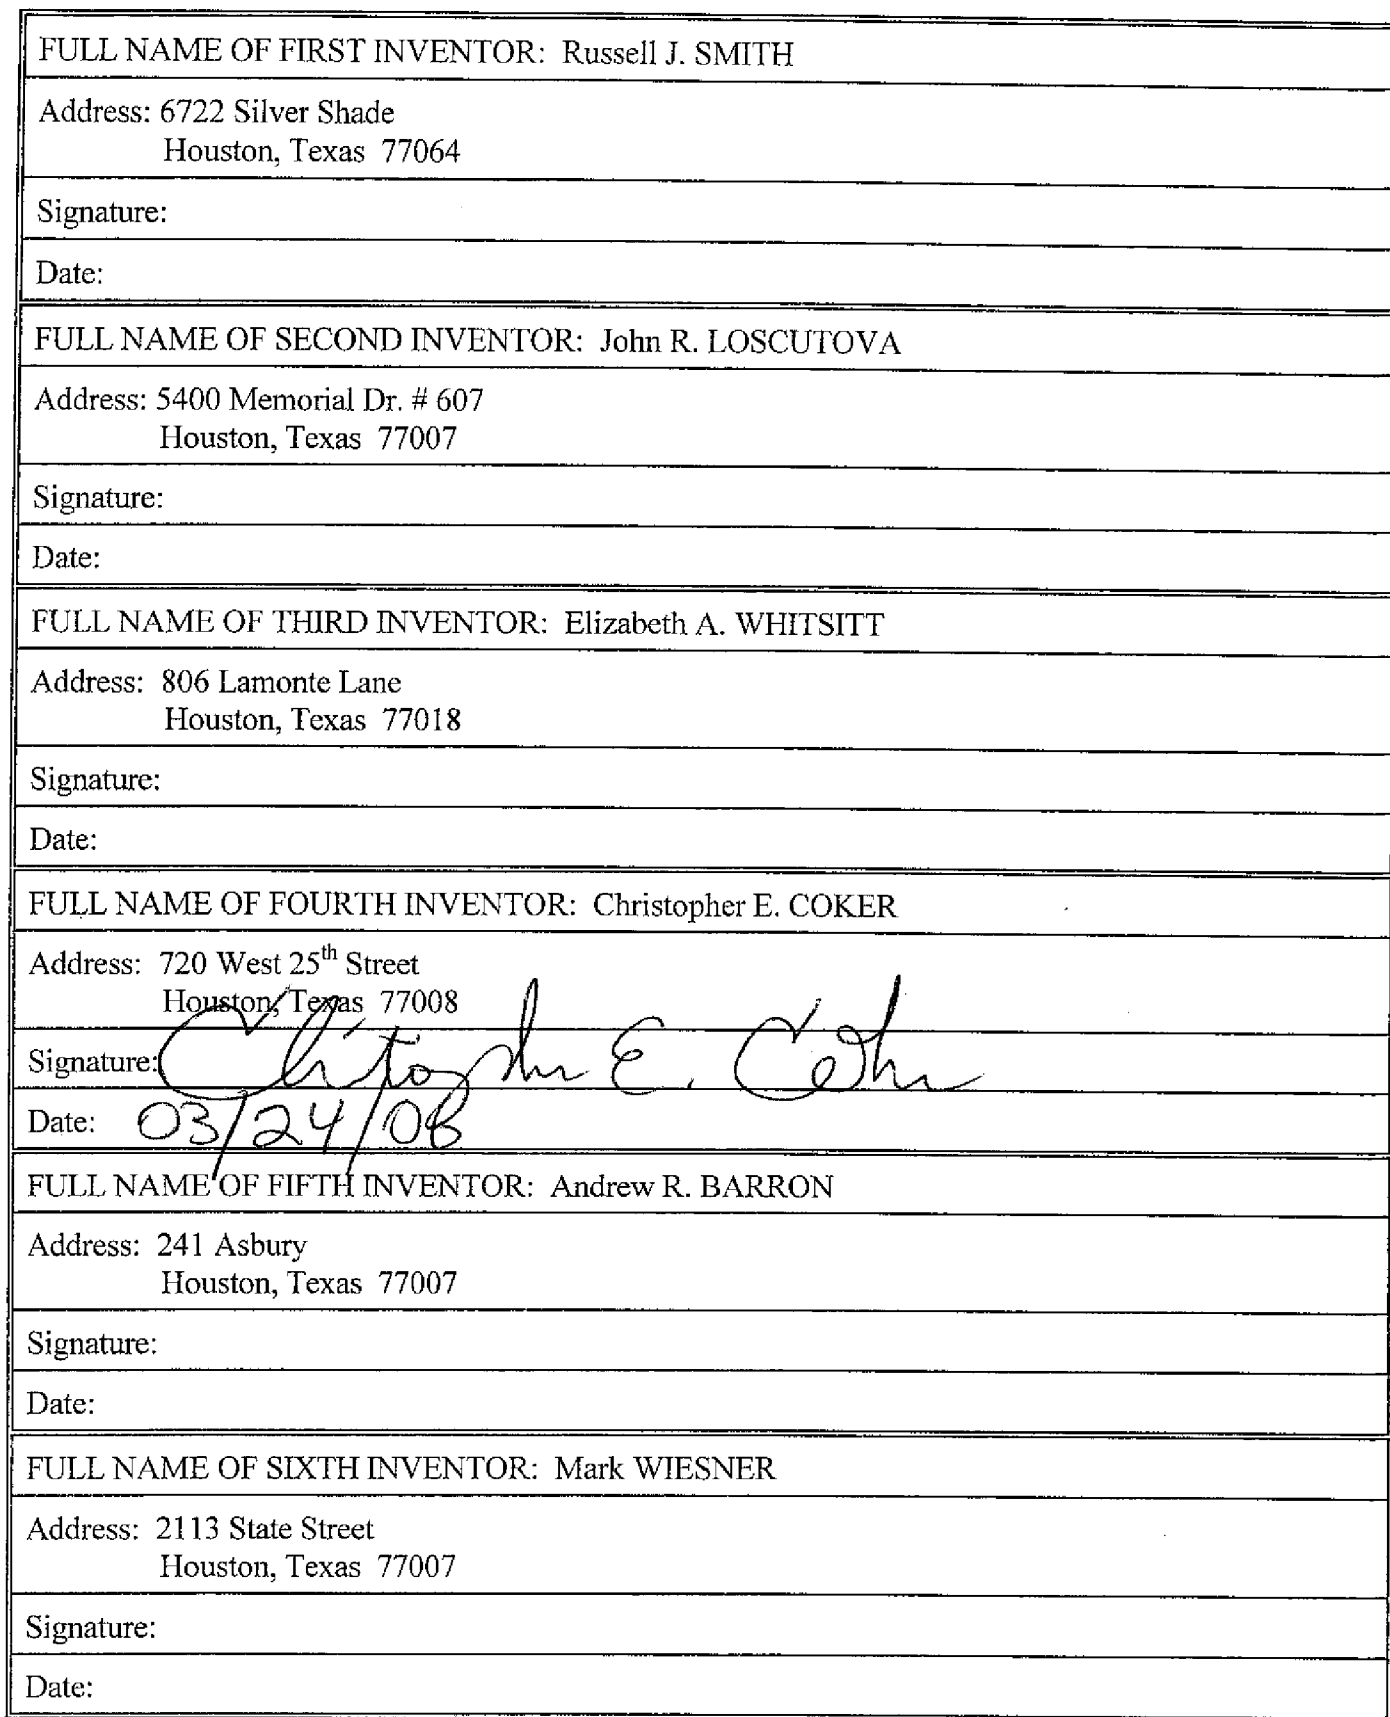 FULL NAME OF FIRST INVENTOR: Russell J. SMITH
Address: 6722 Silver Shade
Houston, Texas 77064
Signature:
Date:
FULL NAME OF SECOND INVENTOR: John R. LOSCUTOVA
Address: 5400 Memorial Dr. # 607
Houston, Texas 77007
Signature:
Date:
FULL NAME OF THIRD INVENTOR: Elizabeth A. WHITSITT
Address: 806 Lamonte Lane
Houston, Texas 77018
Signature:
Date:
FULL NAME OF FOURTH INVENTOR: Christopher E. COKER
Address: 720 West 25th Street
Houston, Texas 77008
Signature: Christopher E. Coker
Date: 03/24/08
FULL NAME OF FIFTH INVENTOR: Andrew R. BARRON
Address: 241 Asbury
Houston, Texas 77007
Signature:
Date:
FULL NAME OF SIXTH INVENTOR: Mark WIESNER
Address: 2113 State Street
Houston, Texas 77007
Signature:
Date: